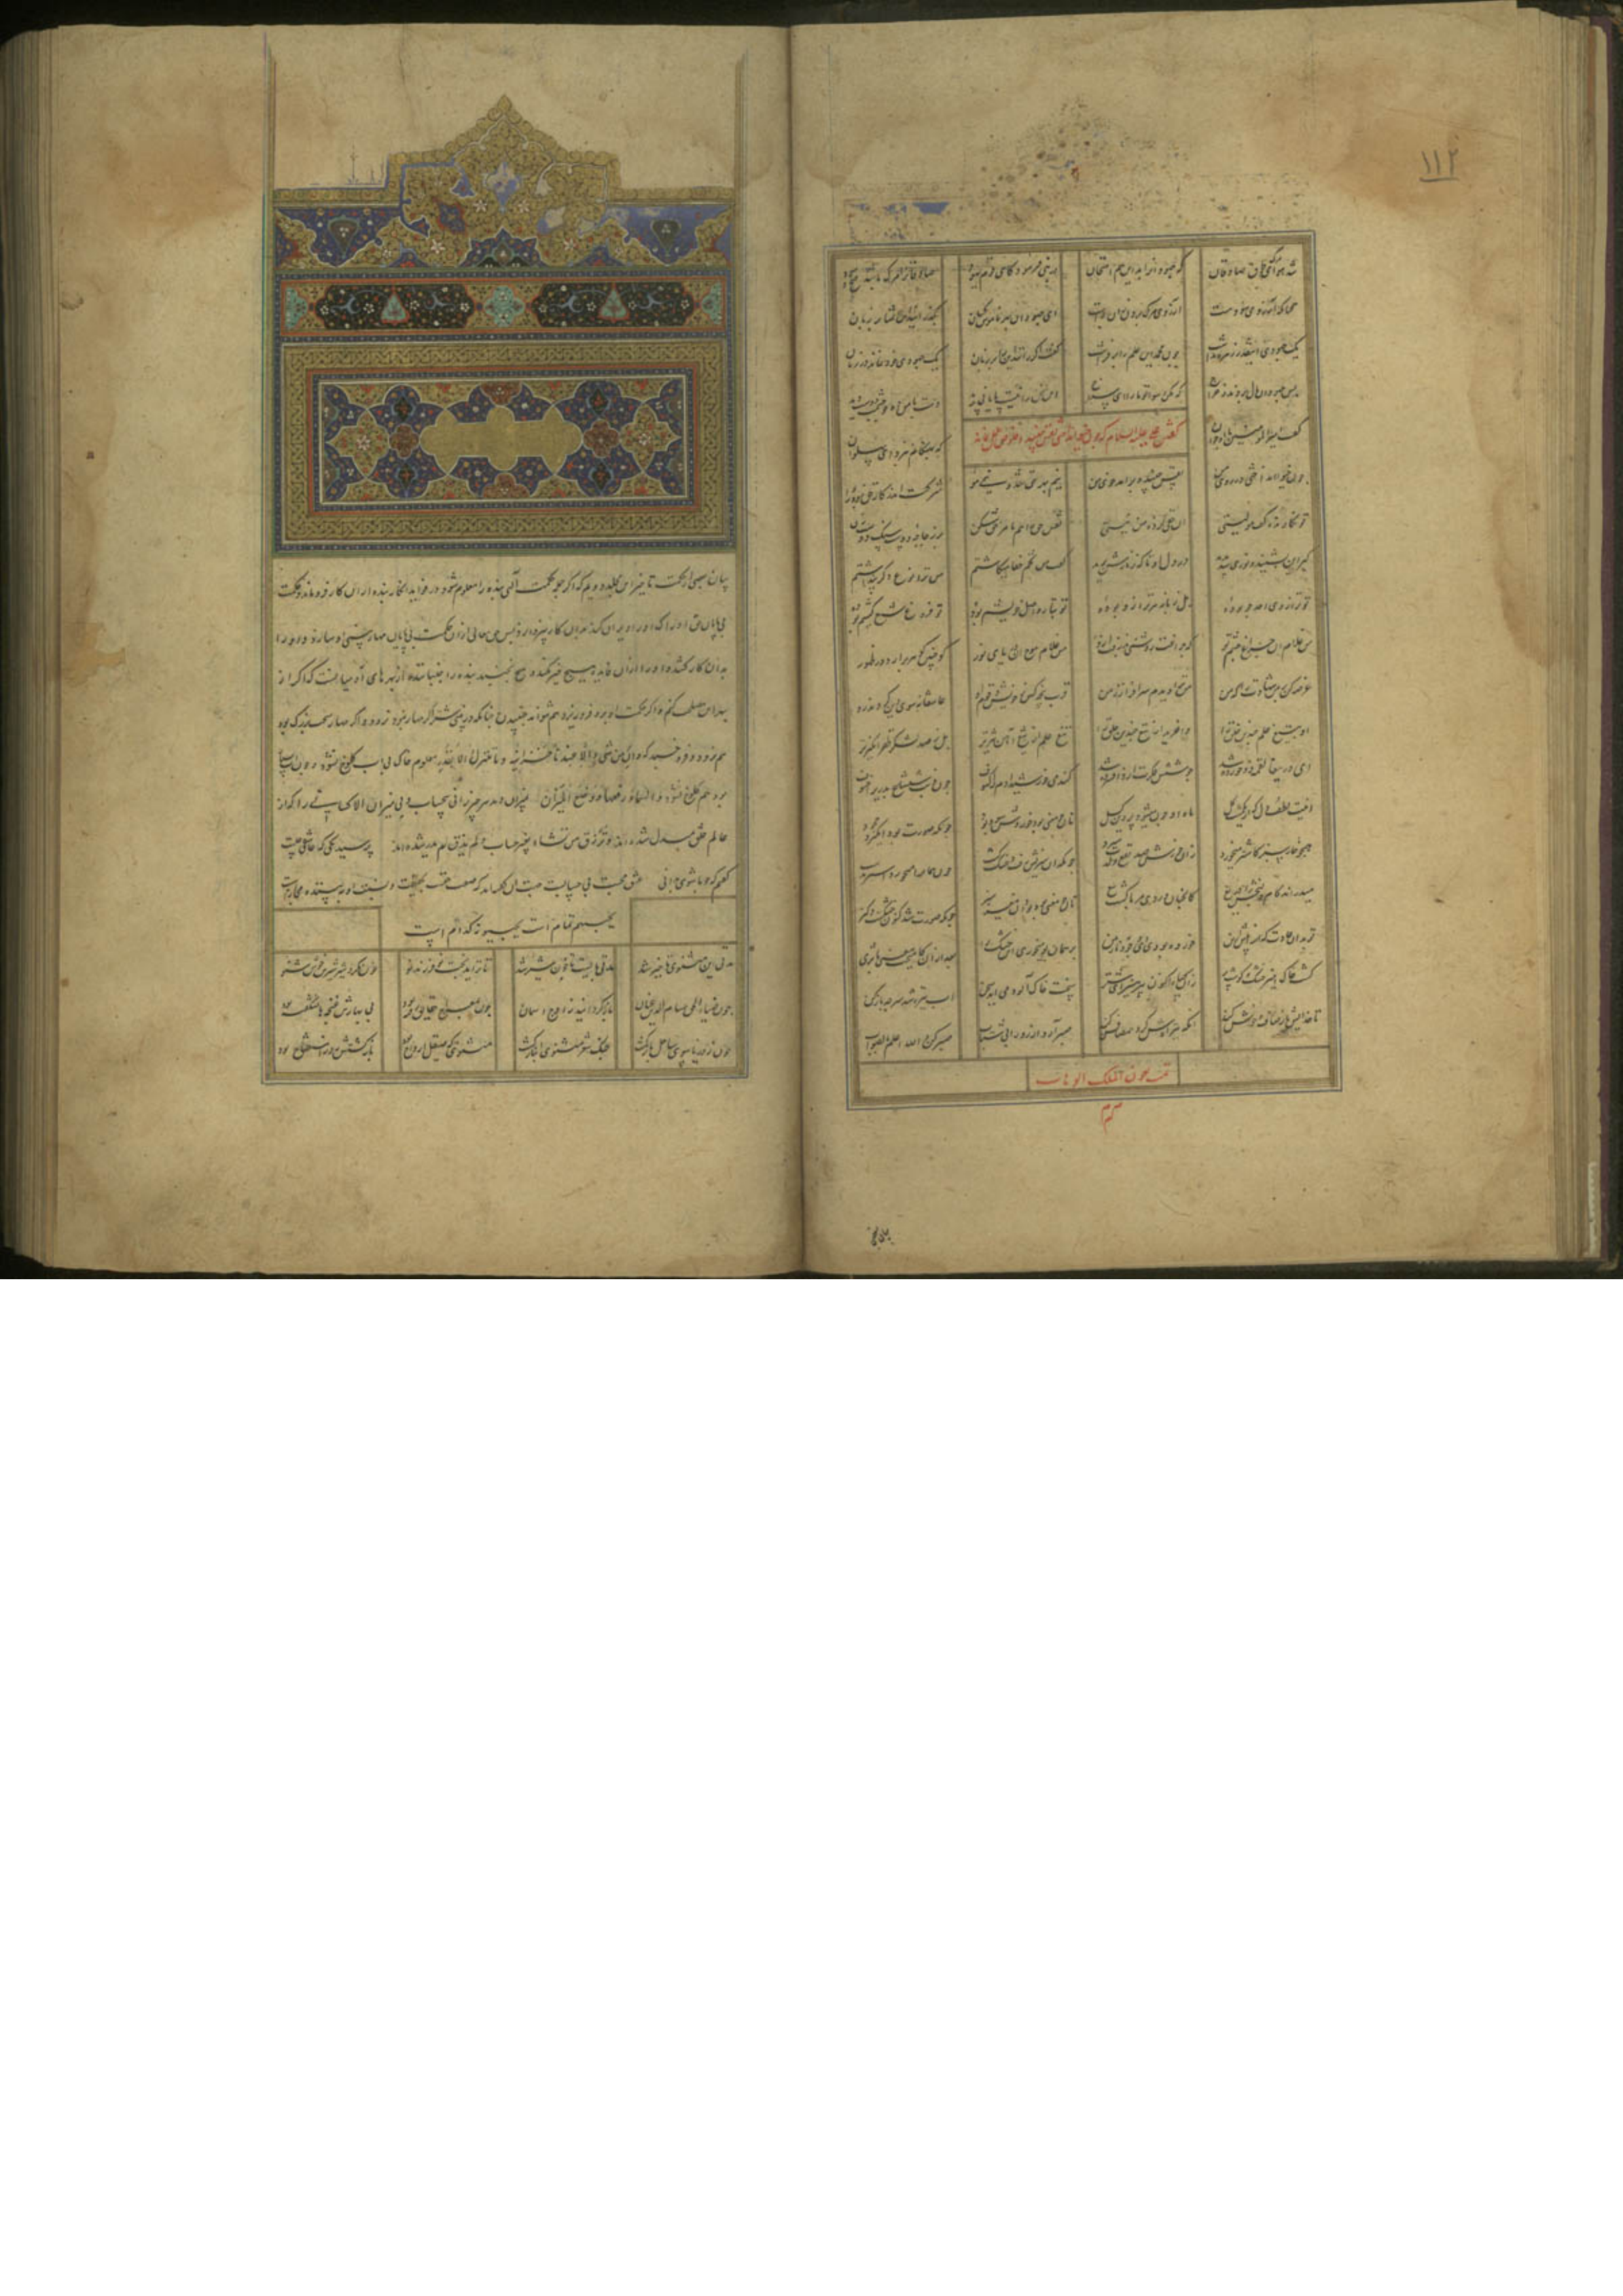 ۱۱۲
شد هوای مرگ طوق صادقان که جهودانرا بد این دم امتحان در نبی فرمود کای قوم یهود صادقانرا مرگ باشد گنج و سود
همچنانکه آرزوی سود هست آرزوی مرگ بردن زان به است ای جهودان بهر ناموس کسان بگذرانید این تمنا بر زبان
یک جهودی اینقدر زهره نداشت چون محمد این علم را برفراشت گفت اگر رانید این را بر زبان یک جهودی خود نماند در زمان
پس جهودان مال بردند و خراج که مکن رسوا تو ما را ای سراج این سخن را نیست پایانی پدید دست با من ده چو چشمت دوست دید
گفتن علی علیه السلام که چون خیو انداختی نفس من جنبید و اخلاص عمل نماند
گفت امیر المومنین با آن جوان که بهنگام نبرد ای پهلوان
چون خیو انداختی در روی من نفس جنبید و تبه شد خوی من نیم بهر حق شد و نیمی هوا شرکت اندر کار حق نبود روا
تو نگاریده کف مولیستی آن حقی کرده من نیستی نقش حق را هم بامر حق شکن بر زجاجه دوست سنگ دوست زن
گبر این بشنید و نوری شد پدید در دل او تا که زنارش برید گفت من تخم جفا میکاشتم من ترا نوعی دگر پنداشتم
تو ترازوی احد خو بوده بل زبانه هر ترازو بوده تو تبار و اصل و خویشم بوده تو فروغ شمع کیشم بوده
من غلام آن چراغ چشم جو که چراغت روشنی پذرفت ازو من غلام موج آن دریای نور کو چنین گوهر برآرد در ظهور
عرضه کن بر من شهادت را که من مر ترا دیدم سرافراز زمن قرب پنجه کس ز خویش و قوم او عاشقانه سوی دین کردند رو
او بتیغ حلم چندین خلق را وا خرید از تیغ چندین حلق را تیغ حلم از تیغ آهن تیزتر بل ز صد لشکر ظفر انگیزتر
ای دریغا لقمه دو خورده شد جوشش فکرت از آن افسرده شد گندمی خورشید آدم را کسوف چون ذنب شعشاع بدری را خسوف
اینت لطف دل که از یک مشت گل ماه او چون میشود پروین گسل نان چو معنی بود خوردش سود بود چونکه صورت بود انگیزد جحود
همچو خار سبز کاشتر میخورد زان خورش صد نفع و لذت میبرد چونکه آن سبزیش رفت و خشک گشت چون همانرا میخورد اشتر ز دشت
میدراند کام و لنجش ای دریغ کانچنان ورد مربی گشت تیغ نان چو معنی بود بود آن خار سبز چونکه صورت شد کنون خشکست و گبز
تو بدان عادت که او را پیش ازین خورده بودی ای وجود نازنین بر همان بو میخوری این خشک را بعد از آن کامیخت معنی با ثری
گشت خاک آمیز و خشک و گوشت بر زان گیاه اکنون بپرهیز ای شتر سخت خاک آلوده می آید سخن آب تیره شد سر چه باز کن
تا خدایش باز صاف و خوش کند آنکه تیره کرد هم صافش کند صبر آرد آرزو را نی شتاب صبر کن والله اعلم بالصواب
تمت بعون الملک الوهاب
بیان بعضی از حکمت تاخیر این مجلد دویم که اگر جمله حکمت الهی بنده را معلوم شود در فواید آنکار بنده از آن کار فرو ماند و حکمت
بی پایان حق ادراک او را ویران کند بدان کار نپردازد پس حق تعالی از آن حکمت بی پایان مهار بینی او سازد و او را
بدان کار کشد که او را از آن فایده هیچ خبر نکند هیچ نجنبد
هم نرود و فرو خسبد که و ان من شی الا عندنا خزائنه و ما ننزله الا بقدر معلوم خاک بی آب کلوخ نشود و چون آب بسیار
بود هم کلوخ نشود و السماء رفعها و وضع المیزان بمیزان دهد هر چیز را نی بحساب و بی میزان الا کسانی را که از
عالم خلق مبدل شده اند و ترزق من تشاء بغیر حساب و لم یذق لم یدر شده اند پرسید یکی که عاشقی چیست
گفتم که چو ما شوی بدانی عشق محبت بی حسابست جهت آن گفته اند که صفت حقست بحقیقت و نسبت او ببنده مجازست
یحبهم تمامست یحبونه کدامست
مدتی این مثنوی تاخیر شد مهلتی بایست تا خون شیر شد تا نزاید بخت تو فرزند نو خون نگردد شیر شیرین خوش شنو
چون ضیاء الحق حسام الدین عنان باز گردانید ز اوج آسمان چون بمعراج حقایق رفته بود بی بهارش غنچه ها نشکفته بود
چون ز دریا سوی ساحل بازگشت چنگ شعر مثنوی با ساز گشت مثنوی که صیقل ارواح بود بازگشتش روز استفتاح بود